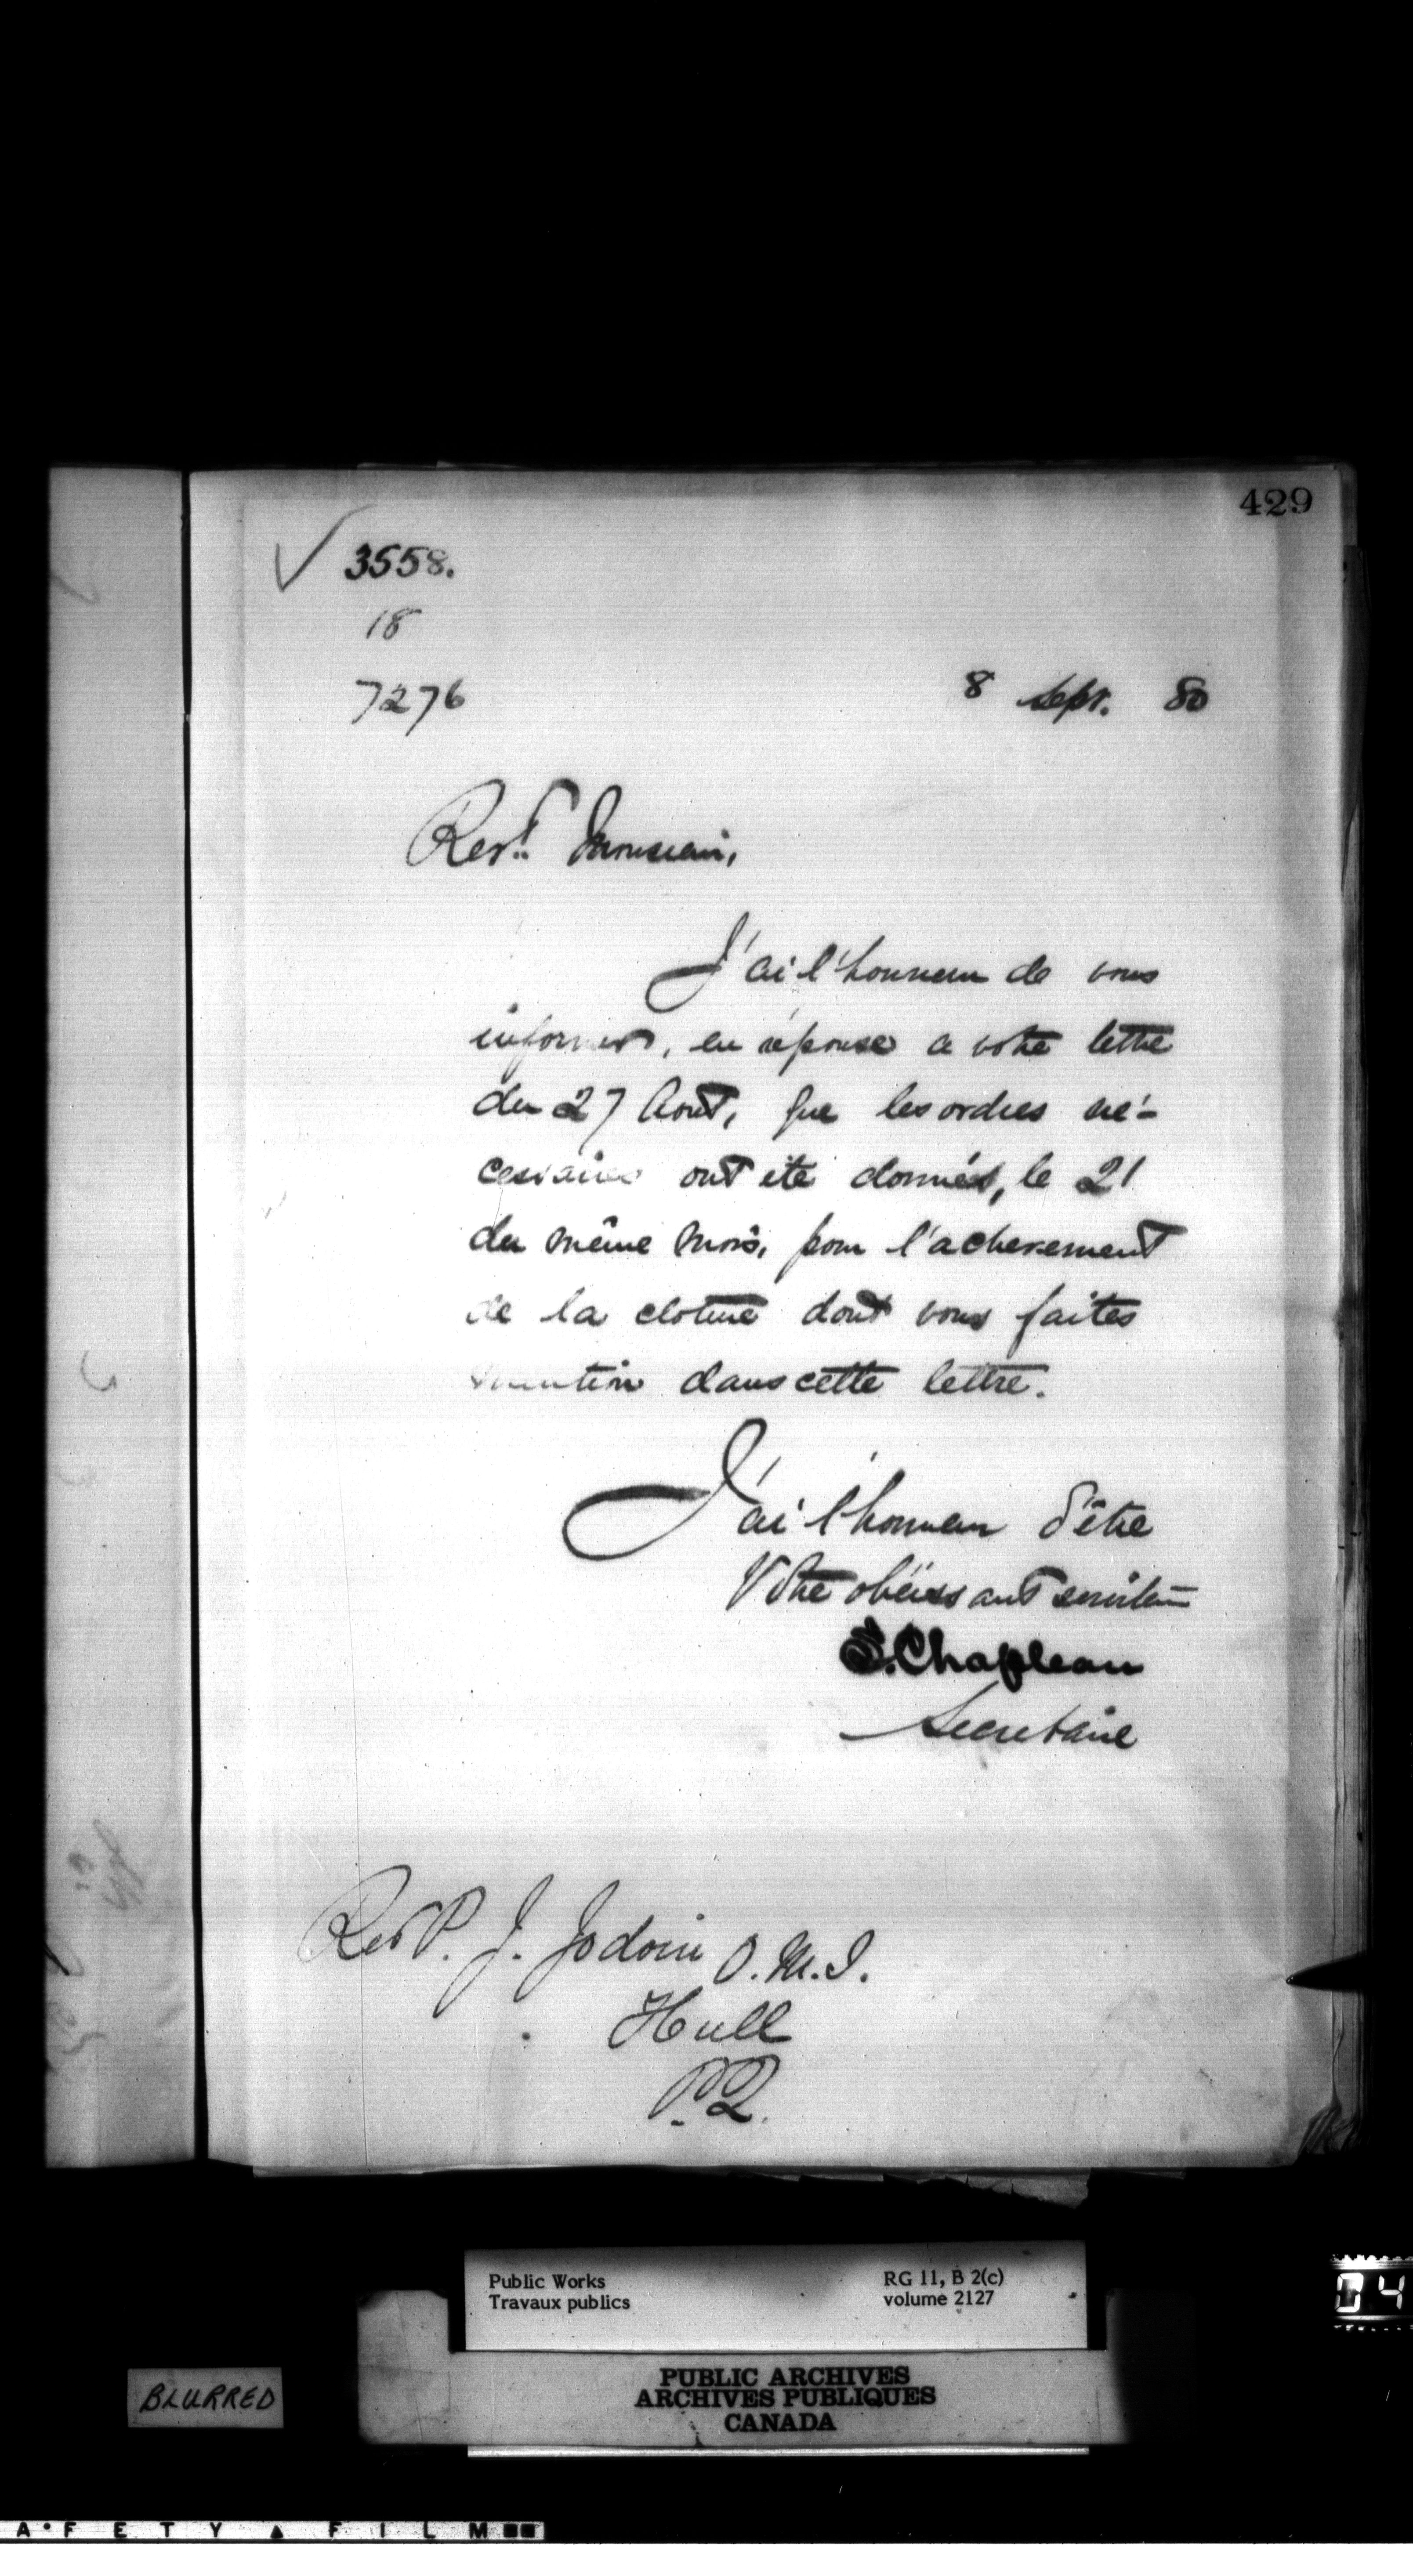 429
3558.
18
7276
8 Sept. 80
Revd. Monsieur,
J'ai l'honneur de vous
informer, en réponse a votre lettre
du 27 Aout, que les ordres né-
cessaires ont été donnés, le 21
du même mois, pour l'achevement
de la cloture dont vous faites
mention dans cette lettre.
J'ai l'honneur d'être
Votre obéissant serviteur
S. Chapleau
Secretaire
Rev P. J. Jodoin O.M.I.
Hull
P.Q.
Public Works RG 11, B 2(c)
Travaux publics volume 2127
PUBLIC ARCHIVES
ARCHIVES PUBLIQUES
CANADA
BLURRED
04
AFETY FILM